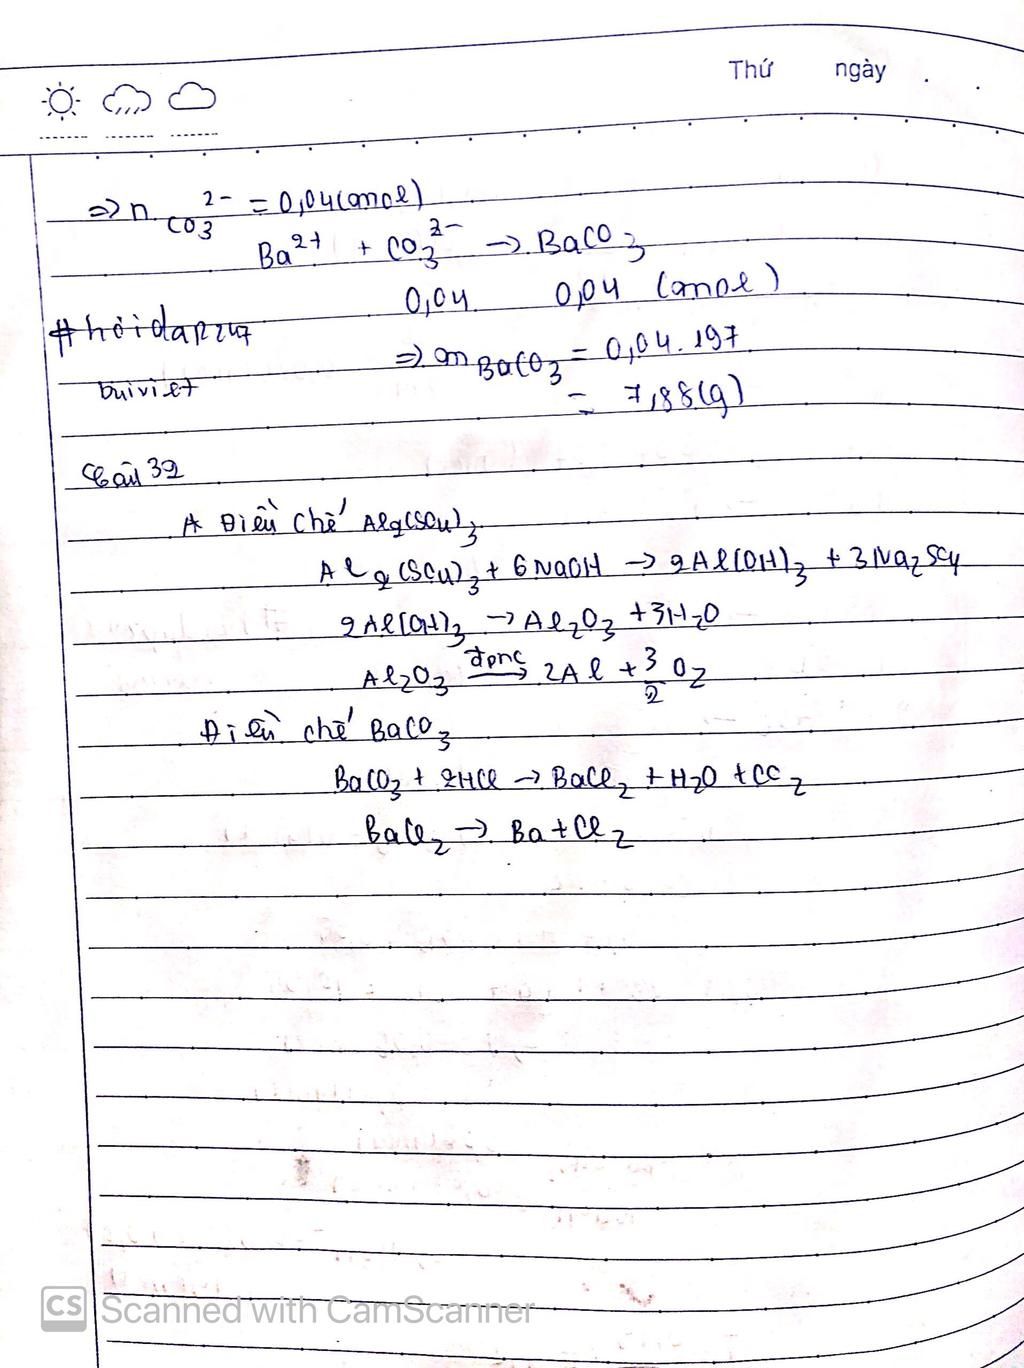 Thứ ngày
=> n CO3 2- = 0,04 (mol)
Ba2+ + CO3 2- -> BaCO3
0,04 0,04 (mol)
#hỏiđap247
=> m BaCO3 = 0,04.197
buiviet
= 7,88(g)
Câu 32
* Điều chế Al2(SO4)3
Al2(SO4)3 + 6NaOH -> 2Al(OH)3 + 3Na2SO4
2Al(OH)3 -> Al2O3 + 3H2O
Al2O3 đpnc -> 2Al + 3/2 O2
Điều chế BaCO3
BaCO3 + 2HCl -> BaCl2 + H2O + CO2
BaCl2 -> Ba + Cl2
CS Scanned with CamScanner